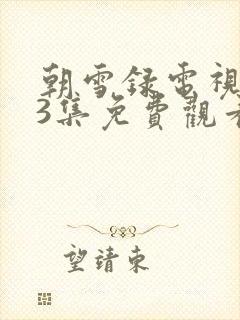 朝雪録電視
3集免費觀看
望請東